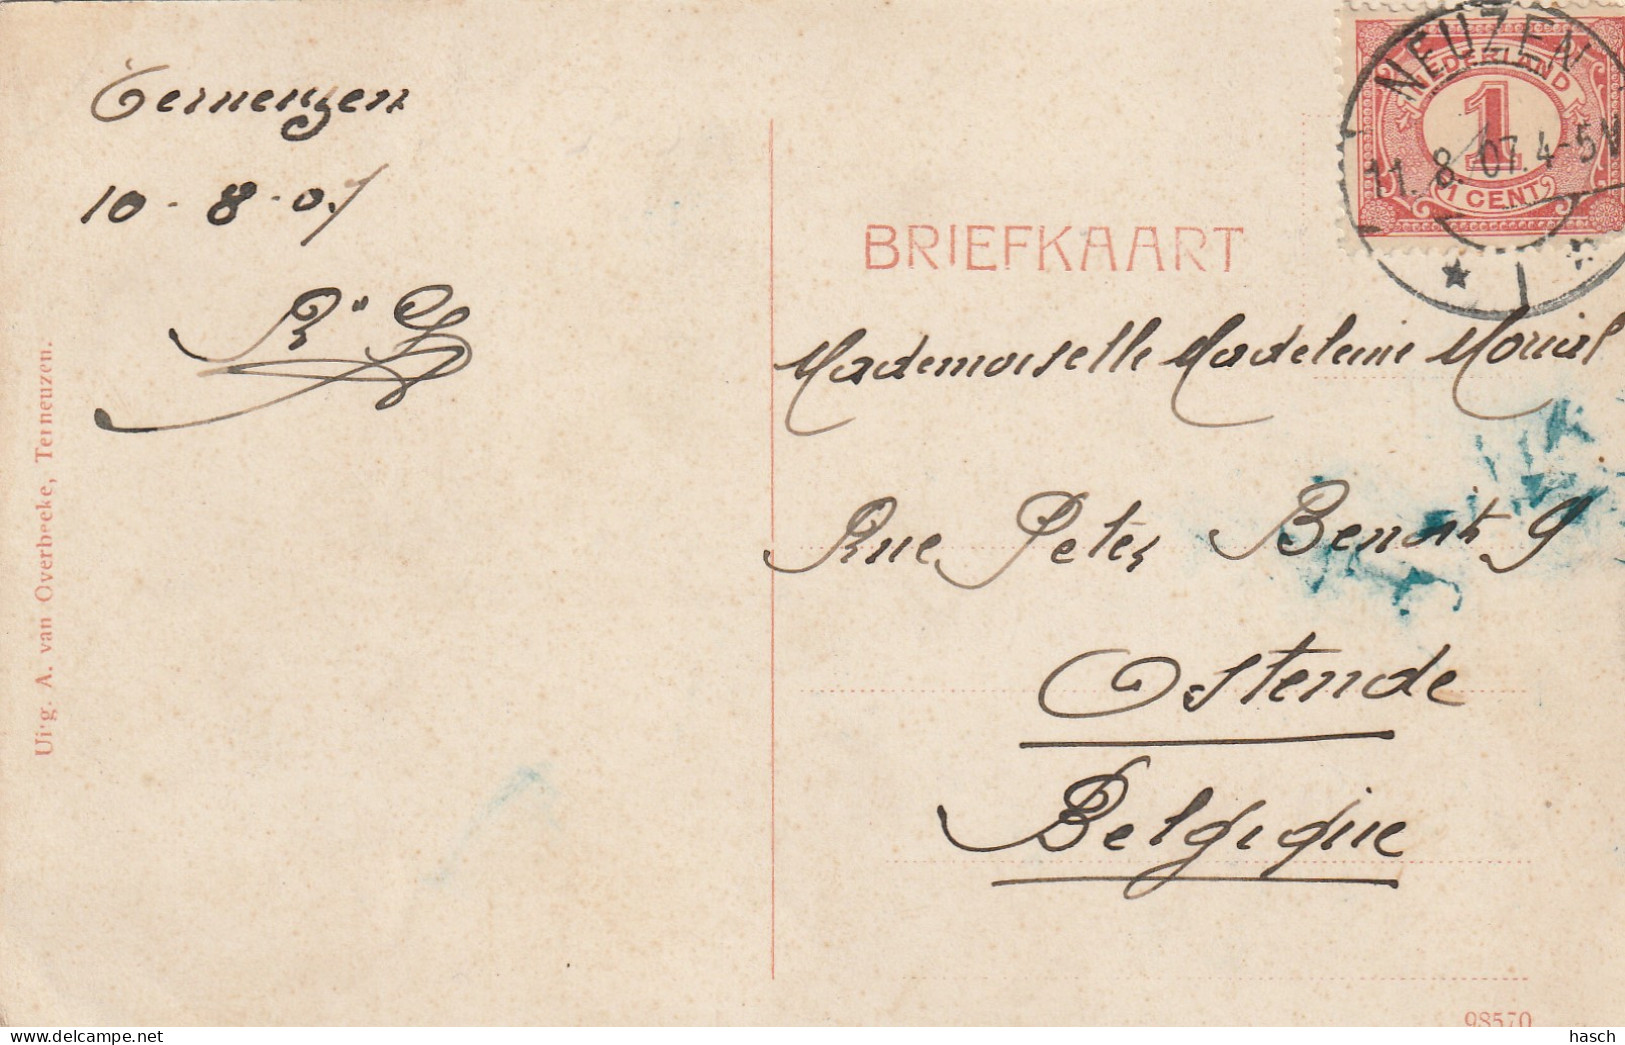 Terneuzen
10-8-07
BRIEFKAART
NEUZEN
11.8.07.4-5V
NEDERLAND
1
1 CENT
Mademoiselle Madeleine
Rue Peter Benoit 9
Ostende
Belgique
Uitg. A. van Overbeeke, Terneuzen.
98570
delcampe.net
hasch